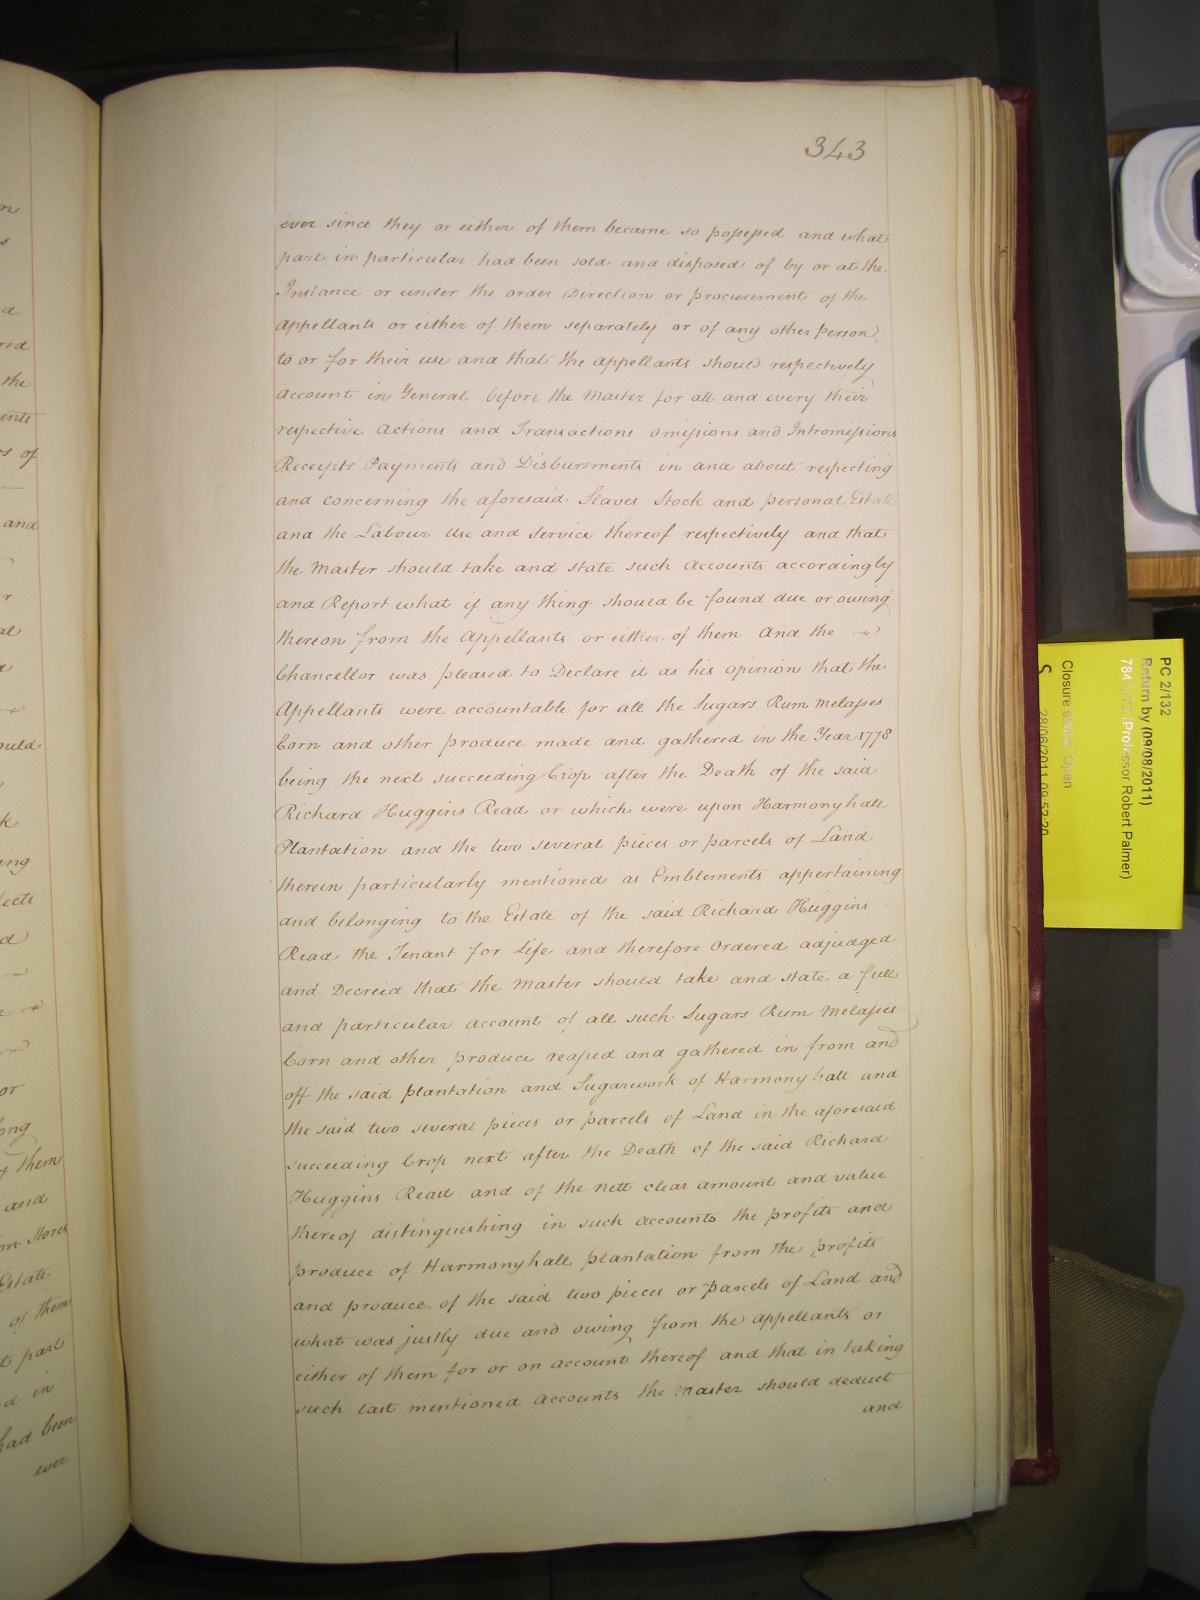 343
ever since they or either of them became so possessed and what
part in particular had been sold and disposed of by or at the
Instance or under the order Direction or procurement of the
appellants or either of them separately or of any other person
to or for their use and that the appellants should respectively
account in General before the Master for all and every their
respective Actions and Transactions Omissions and Intromissions
Receipts Payments and Disbursments in and about respecting
and concerning the aforesaid Slaves Stock and personal Estate
and the Labour Use and Service thereof respectively and that
the Master should take and state such Accounts accordingly
and Report what if any thing should be found due or owing
thereon from the Appellants or either of them And the
Chancellor was pleased to Declare it as his opinion that the
Appellants were accountable for all the Sugars Rum Melasses
Corn and other produce made and gathered in the Year 1778
being the next succeeding Crop after the Death of the said
Richard Huggins Read or which were upon Harmonyhall
Plantation and the two several pieces or parcels of Land
therein particularly mentioned as Emblements appertaining
and belonging to the Estate of the said Richard Huggins
Read the Tenant for Life and therefore Ordered adjudged
and Decreed that the Master should take and state a full
and particular account of all such Sugars Rum Melasses
Corn and other produce reaped and gathered in from and
off the said plantation and Sugarwork of Harmonyhall and
the said two several pieces or parcels of Land in the aforesaid
succeeding Crop next after the Death of the said Richard
Huggins Read and of the nett clear amount and value
thereof distinguishing in such accounts the profits and
produce of Harmonyhall plantation from the profits
and produce of the said two pieces or parcels of Land and
what was justly due and owing from the appellants or
either of them for or on account thereof and that in taking
such last mentioned accounts the Master should deduct
and
a
red
the
ents
s of
and
r
al
ould
k
ing
lects
or
ong
of them
and
Stores
Estate
of them
part
d in
had been
ever
PC 2/132
Return by (09/08/2011)
(Professor Robert Palmer)
Closure status: Open
S
28/06/2011 09:52:20